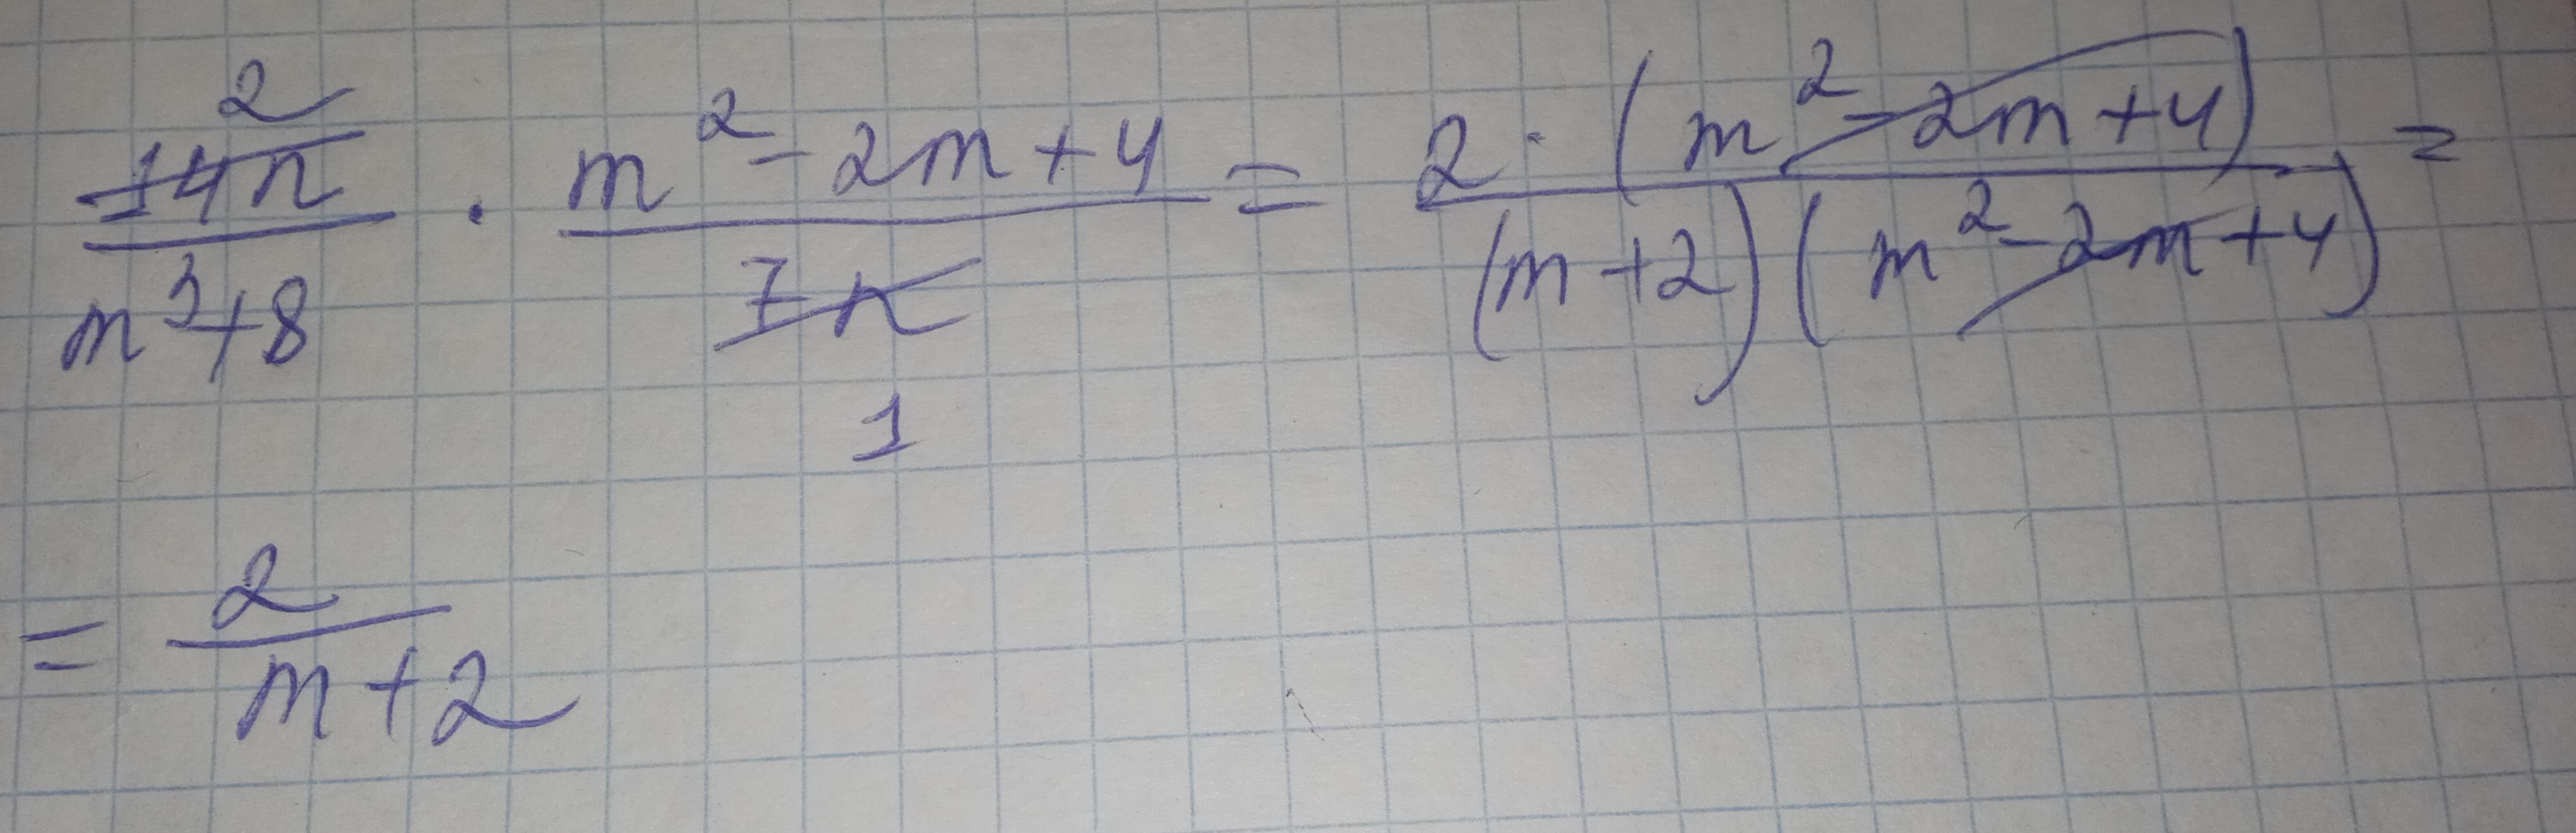 2
14n/(m³+8) · (m²-2m+4)/(7n) = 2·(m²-2m+4)/((m+2)(m²-2m+4)) =
1
= 2/(m+2)